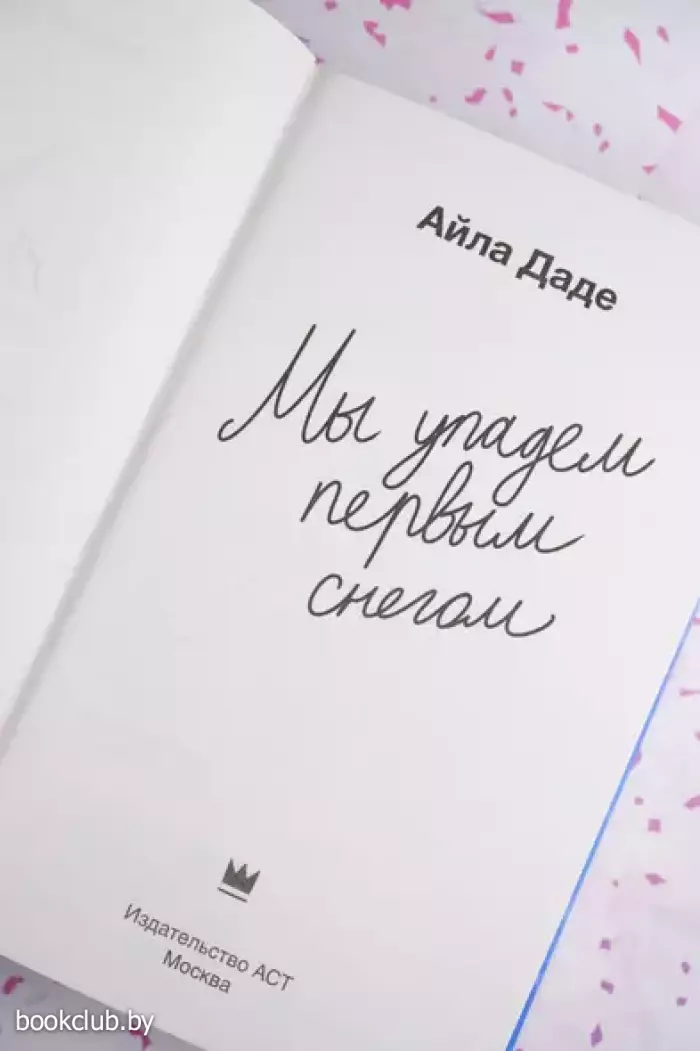 Айла Даде
Мы упадем
первым
снегом
Издательство АСТ
Москва
bookclub.by